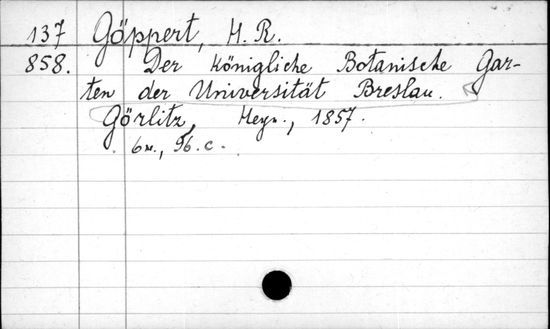 137 Göppert, H. R.
858. Der Königliche Botanische Gar-
ten der Universität Breslau.
Görlitz, Heyn., 1857.
96. c.